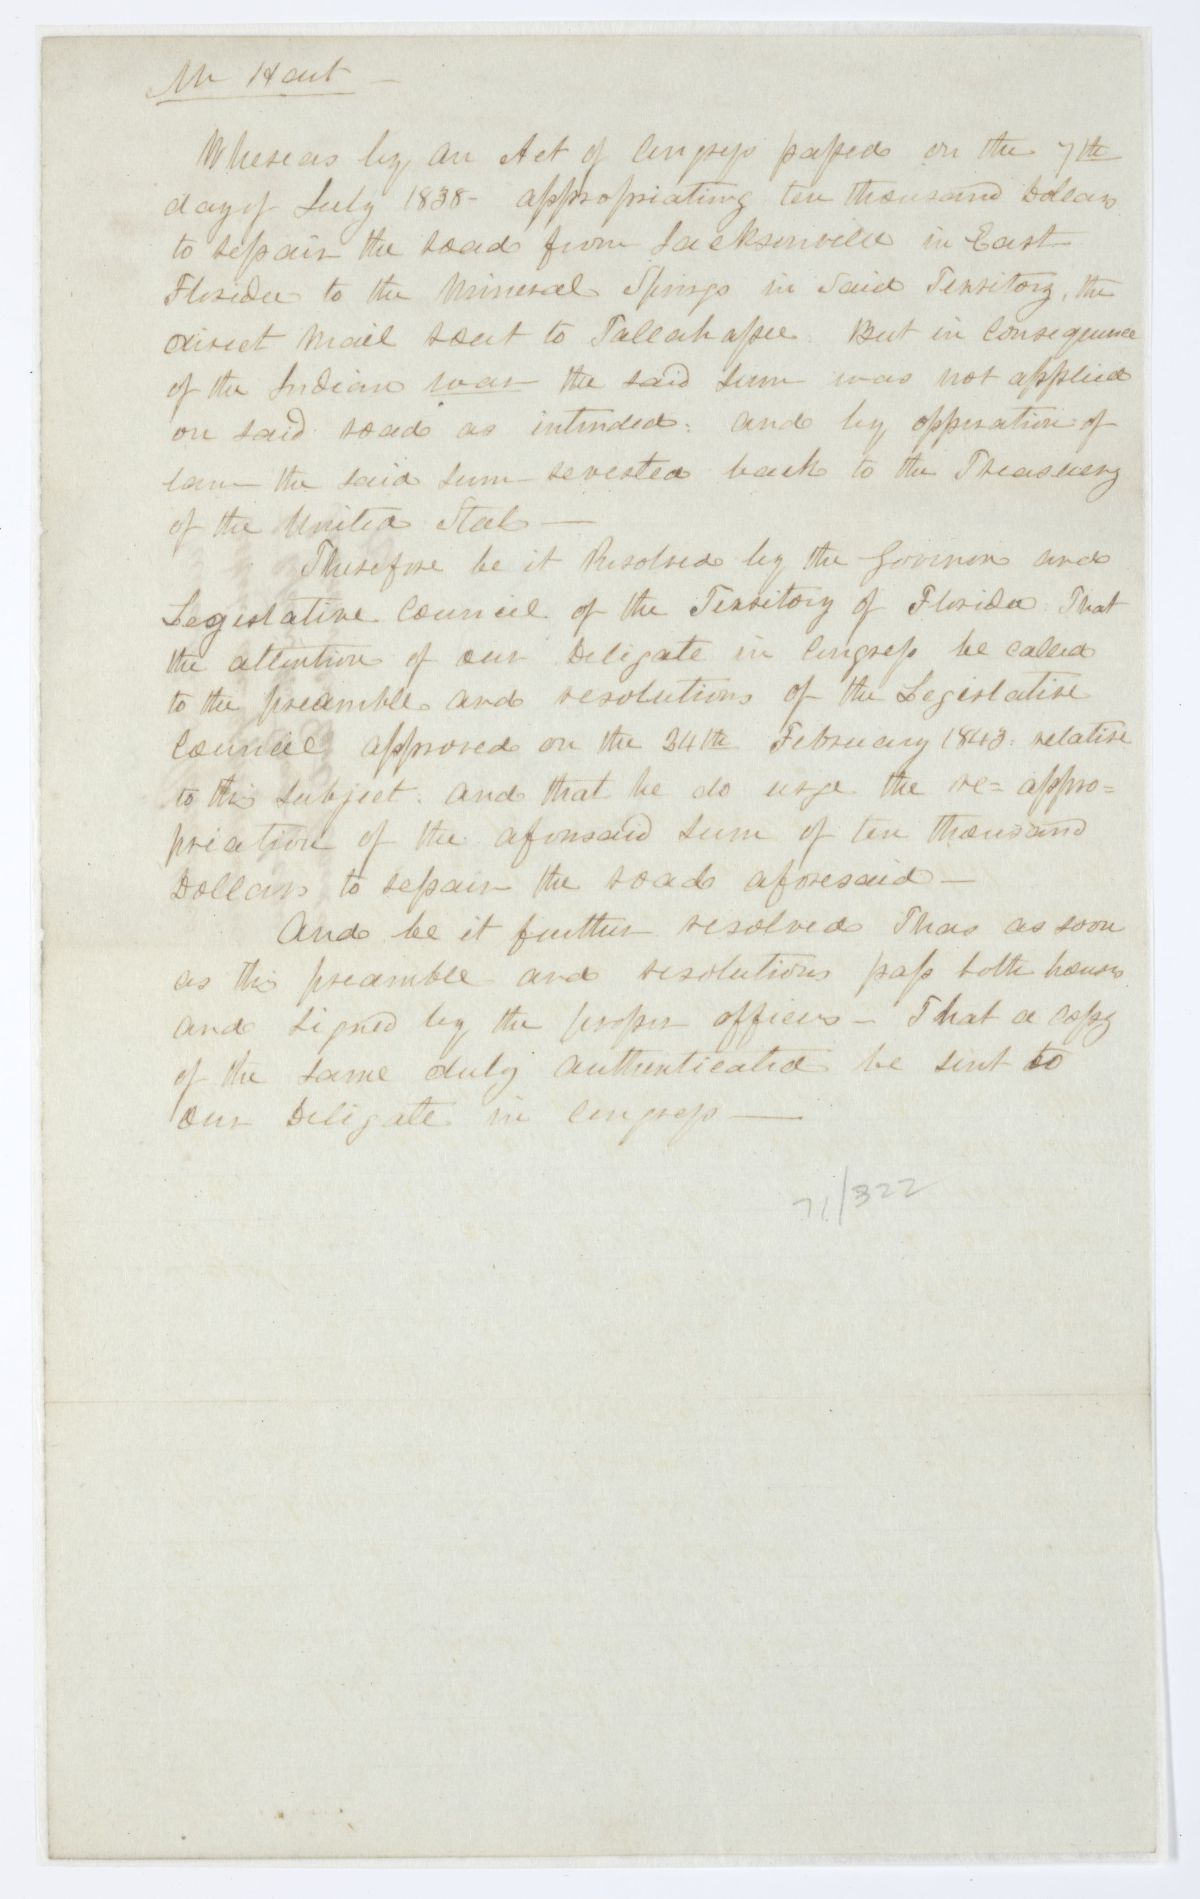 Mr Hart —
Whereas by an Act of Congress passed on the 7th
day of July 1838 - appropriating ten thousand Dollars
to repair the road from Jacksonville in East
Florida to the Mineral Springs in said Territory, the
direct Mail rout to Tallahassee. But in Consequence
of the Indian war the said sum was not applied
on said road as intended: and by opperation of
law the said sum reverted back to the Treasury
of the United States —
Therefore be it Resolved by the Govenor and
Legislative Council of the Territory of Florida That
the attention of our Deligate in Congress be called
to the preamble and resolutions of the Legislative
Council approved on the 24th February 1843: relative
to this subject. and that he do urge the re=appro=
priation of the aforesaid sum of ten thousand
Dollars to repair the road aforesaid —
And be it further resolved Thas as soon
as this preamble and resolutions pass both houses
and signed by the proper officers — That a copy
of the same duly authenticated be sent to
our Deligate in Congress —
71/322